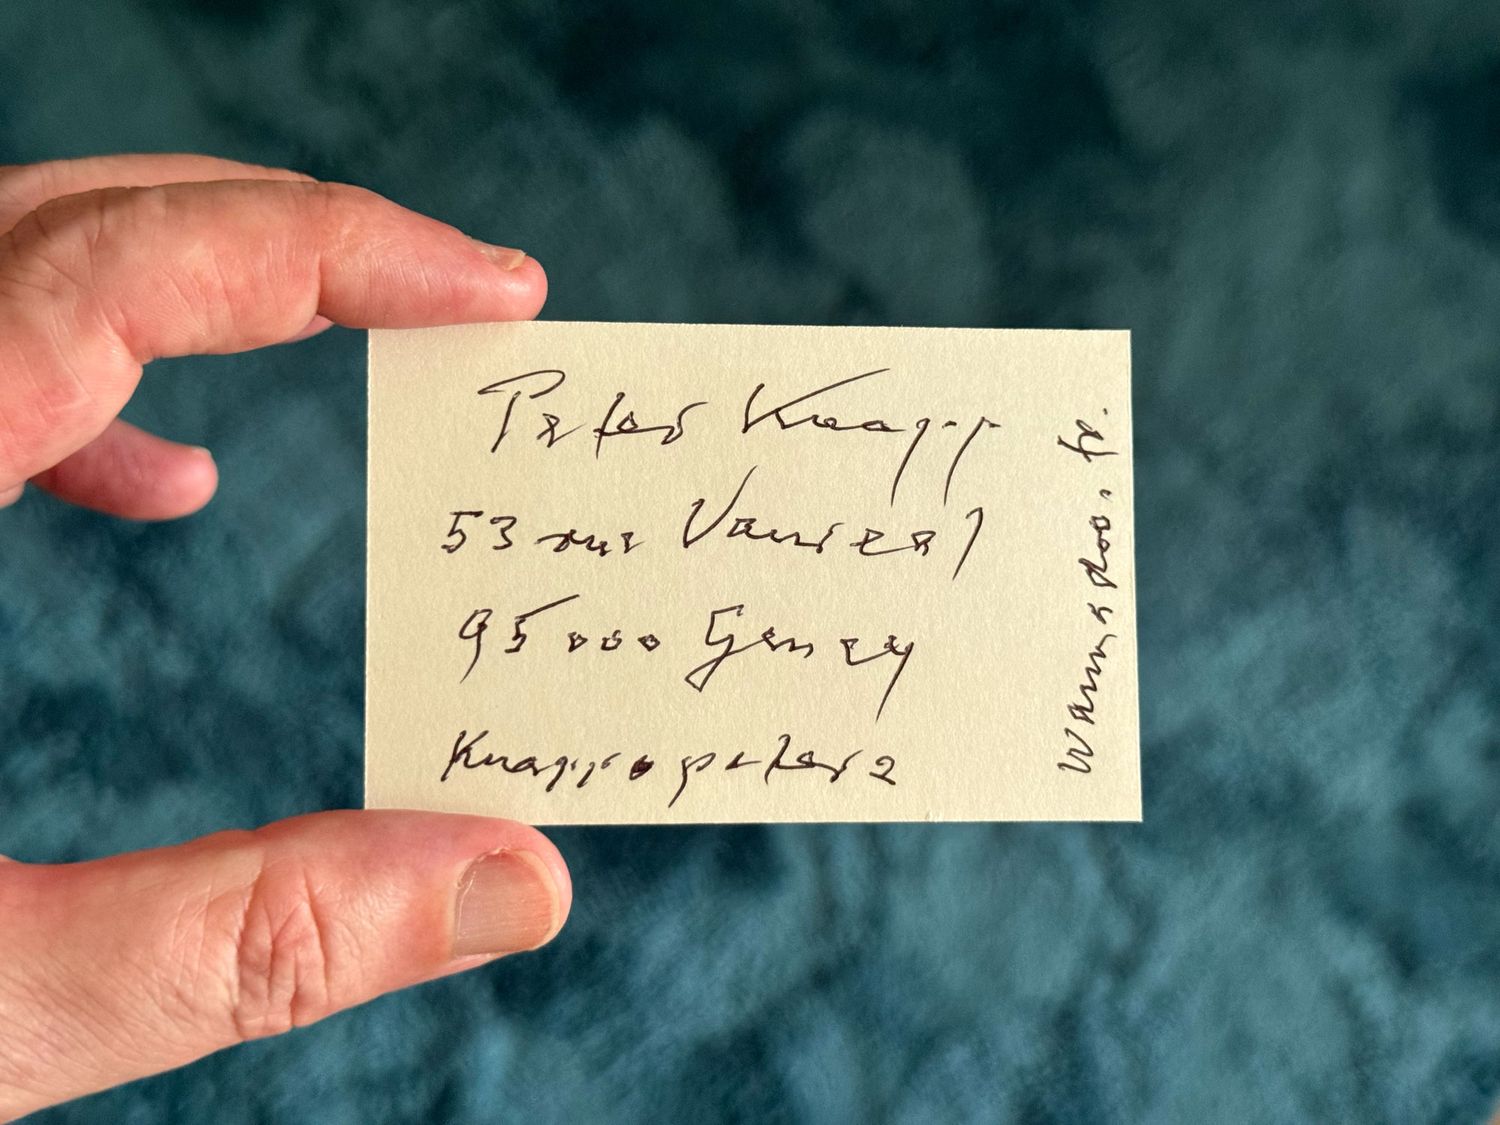 Peter Knapp
53 rue Vaureal
95000 Gency
Knapp.peter2
wanadoo.fr.